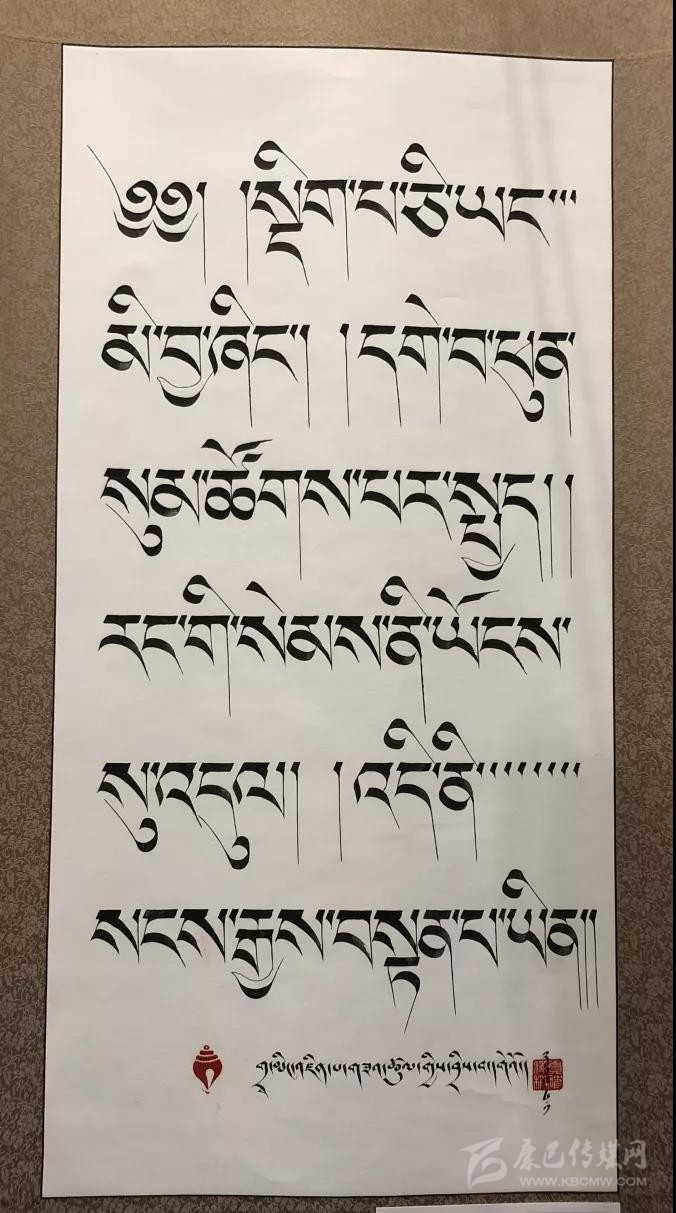 ༄༅། །སྡིག་པ་ཅི་ཡང་་་
མི་བྱ་ཞིང་། །དགེ་བ་ཕུན
སུམ་ཚོགས་པར་སྤྱད། །
རང་གི་སེམས་ནི་ཡོངས་
སུ་འདུལ། །འདི་ནི་་་་་་་་
སངས་རྒྱས་བསྟན་པ་ཡིན།།
康巴传媒网
WWW.KBCMW.COM